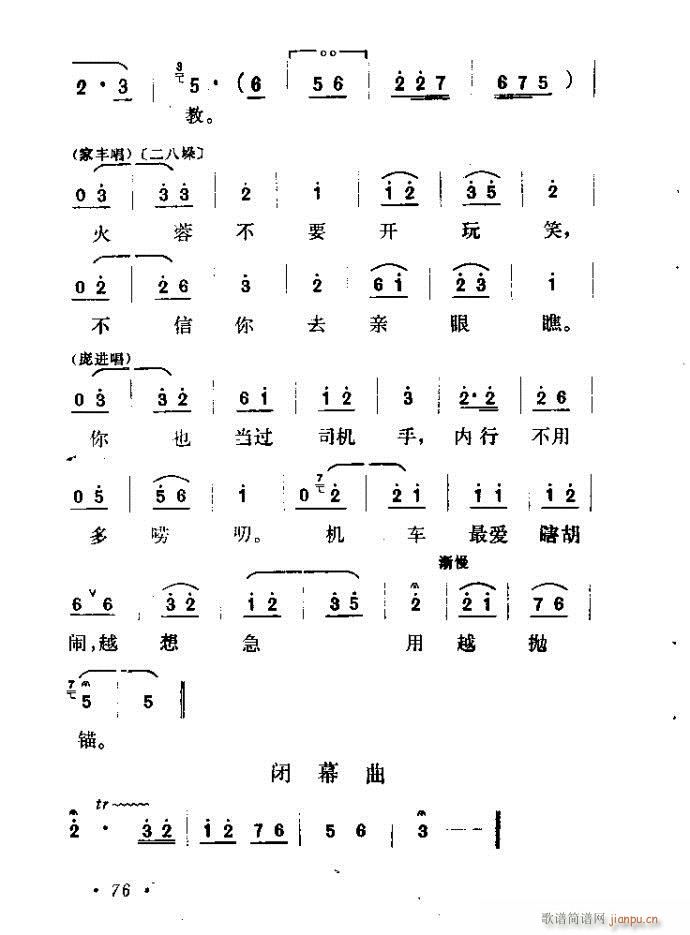 2 · 3 | 5 · ( 6 5 6 | 2 2 7 | 6 7 5 )
教。
(家丰唱)〔二八垛〕
0 3 | 3 3 | 2 | 1 | 1 2 | 3 5 | 2
火 蓉 不 要 开 玩 笑,
0 2 | 2 6 | 3 | 2 | 6 1 | 2 3 | 1
不 信 你 去 亲 眼 瞧。
(庞进唱)
0 3 | 3 2 | 6 1 | 1 2 | 3 | 2 · 2 | 2 6
你 也 当过 司机 手, 内行 不用
0 5 | 5 6 | 1 | 0 2 | 2 1 | 1 1 | 1 2
多 唠 叨。 机 车 最爱 瞎胡
渐慢
6 6 | 3 2 | 1 2 | 3 5 | 2 | 2 1 | 7 6
闹,越 想 急 用 越 抛
5 | 5
锚。
闭 幕 曲
tr
2 · 3 2 | 1 2 7 6 | 5 6 | 3 — —
· 76 ·
歌谱简谱网 jianpu.cn